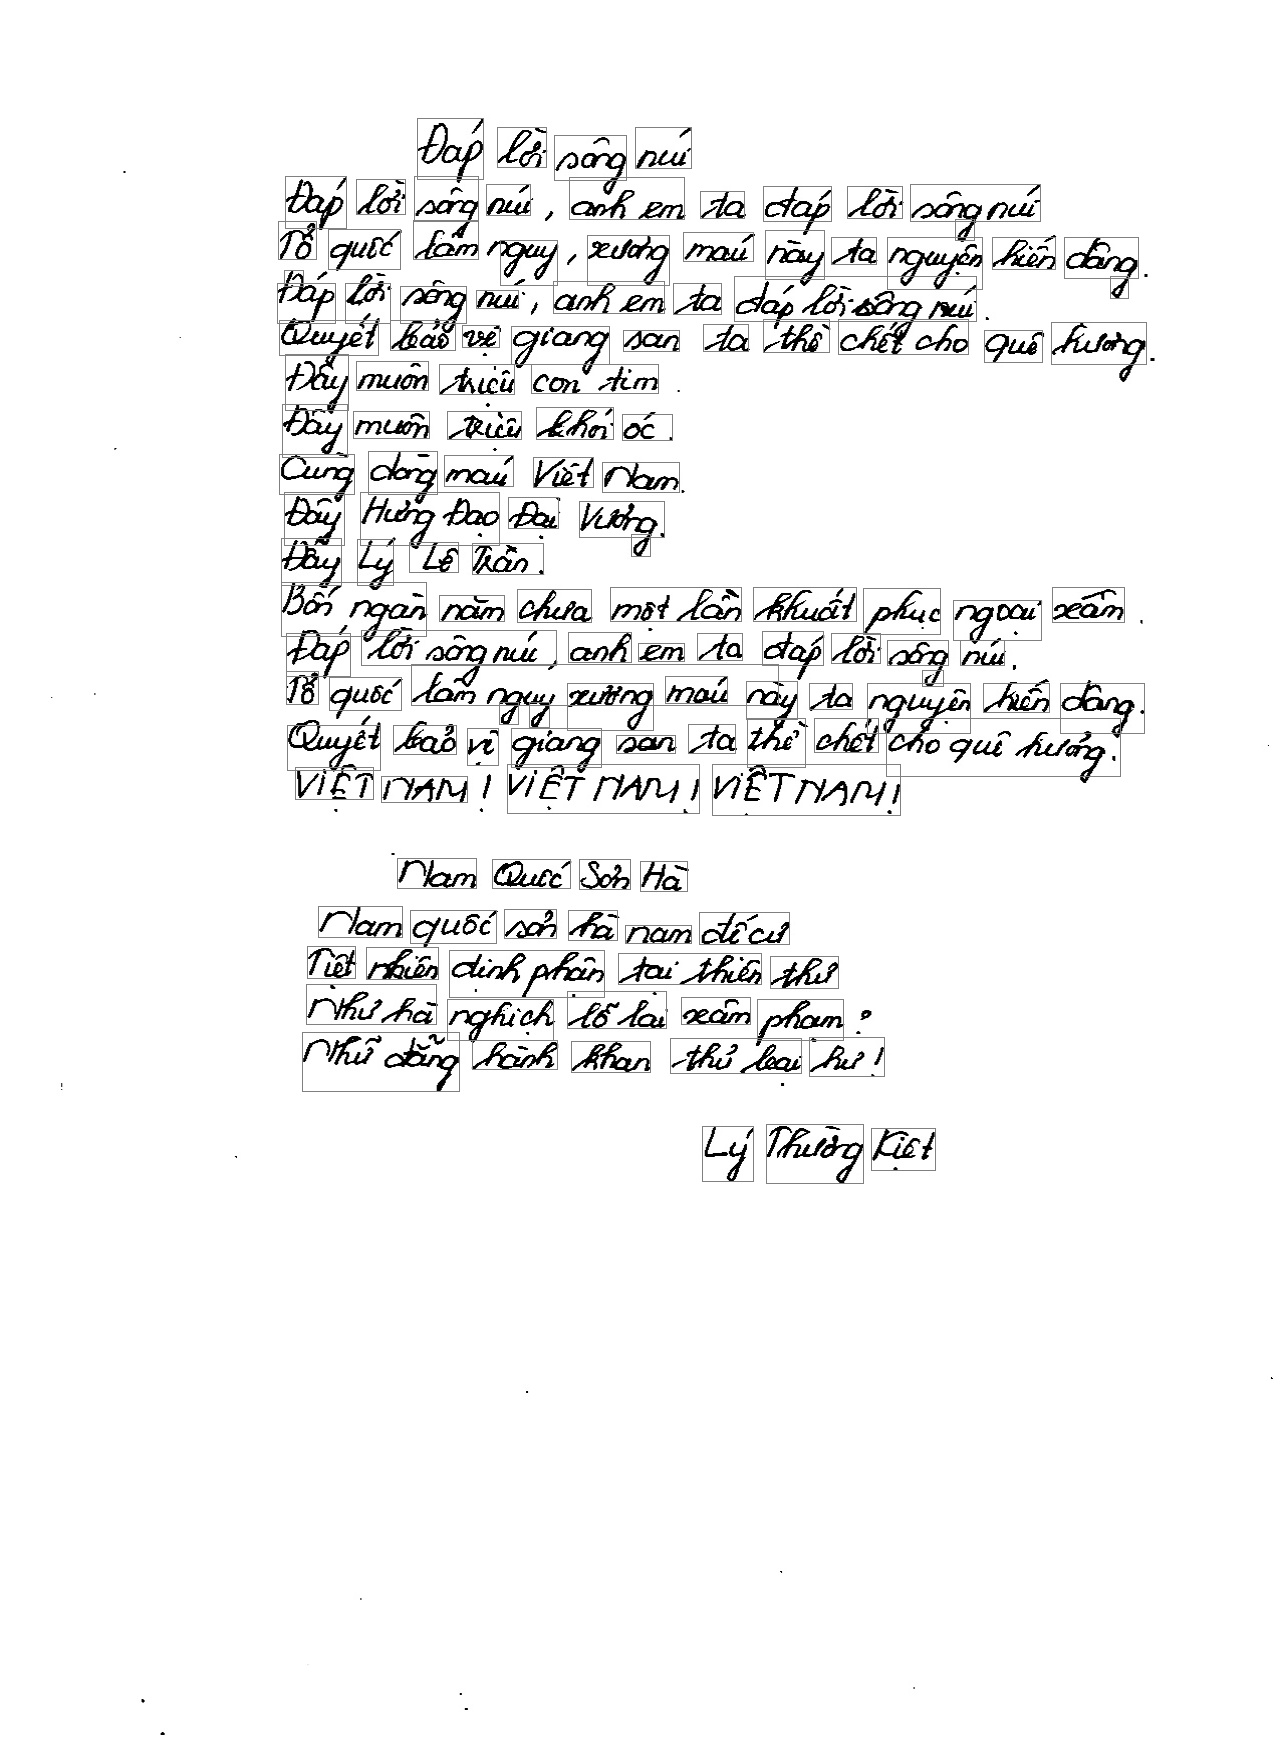 Đáp lời sông núi
Đáp lời sông núi, anh em ta đáp lời sông núi
Tổ quốc lâm nguy, xương máu này ta nguyện hiến dâng.
Đáp lời sông núi, anh em ta đáp lời sông núi.
Quyết bảo vệ giang san ta thề chết cho quê hương.
Đây muôn triệu con tim.
Đây muôn triệu khối óc.
Cùng dòng máu Việt Nam.
Đây Hưng Đạo Đại Vương.
Đây Lý Lê Trần.
Bốn ngàn năm chưa một lần khuất phục ngoại xâm.
Đáp lời sông núi, anh em ta đáp lời sông núi.
Tổ quốc lâm nguy xương máu này ta nguyện hiến dâng.
Quyết bảo vị giang san ta thề chết cho quê hương.
VIỆT NAM! VIỆT NAM! VIỆT NAM!
Nam Quốc Sơn Hà
Nam quốc sơn hà nam đế cư
Tiệt nhiên định phận tại thiên thư
Như hà nghịch lỗ lai xâm phạm?
Nhữ đẳng hành khan thủ bại hư!
Lý Thường Kiệt